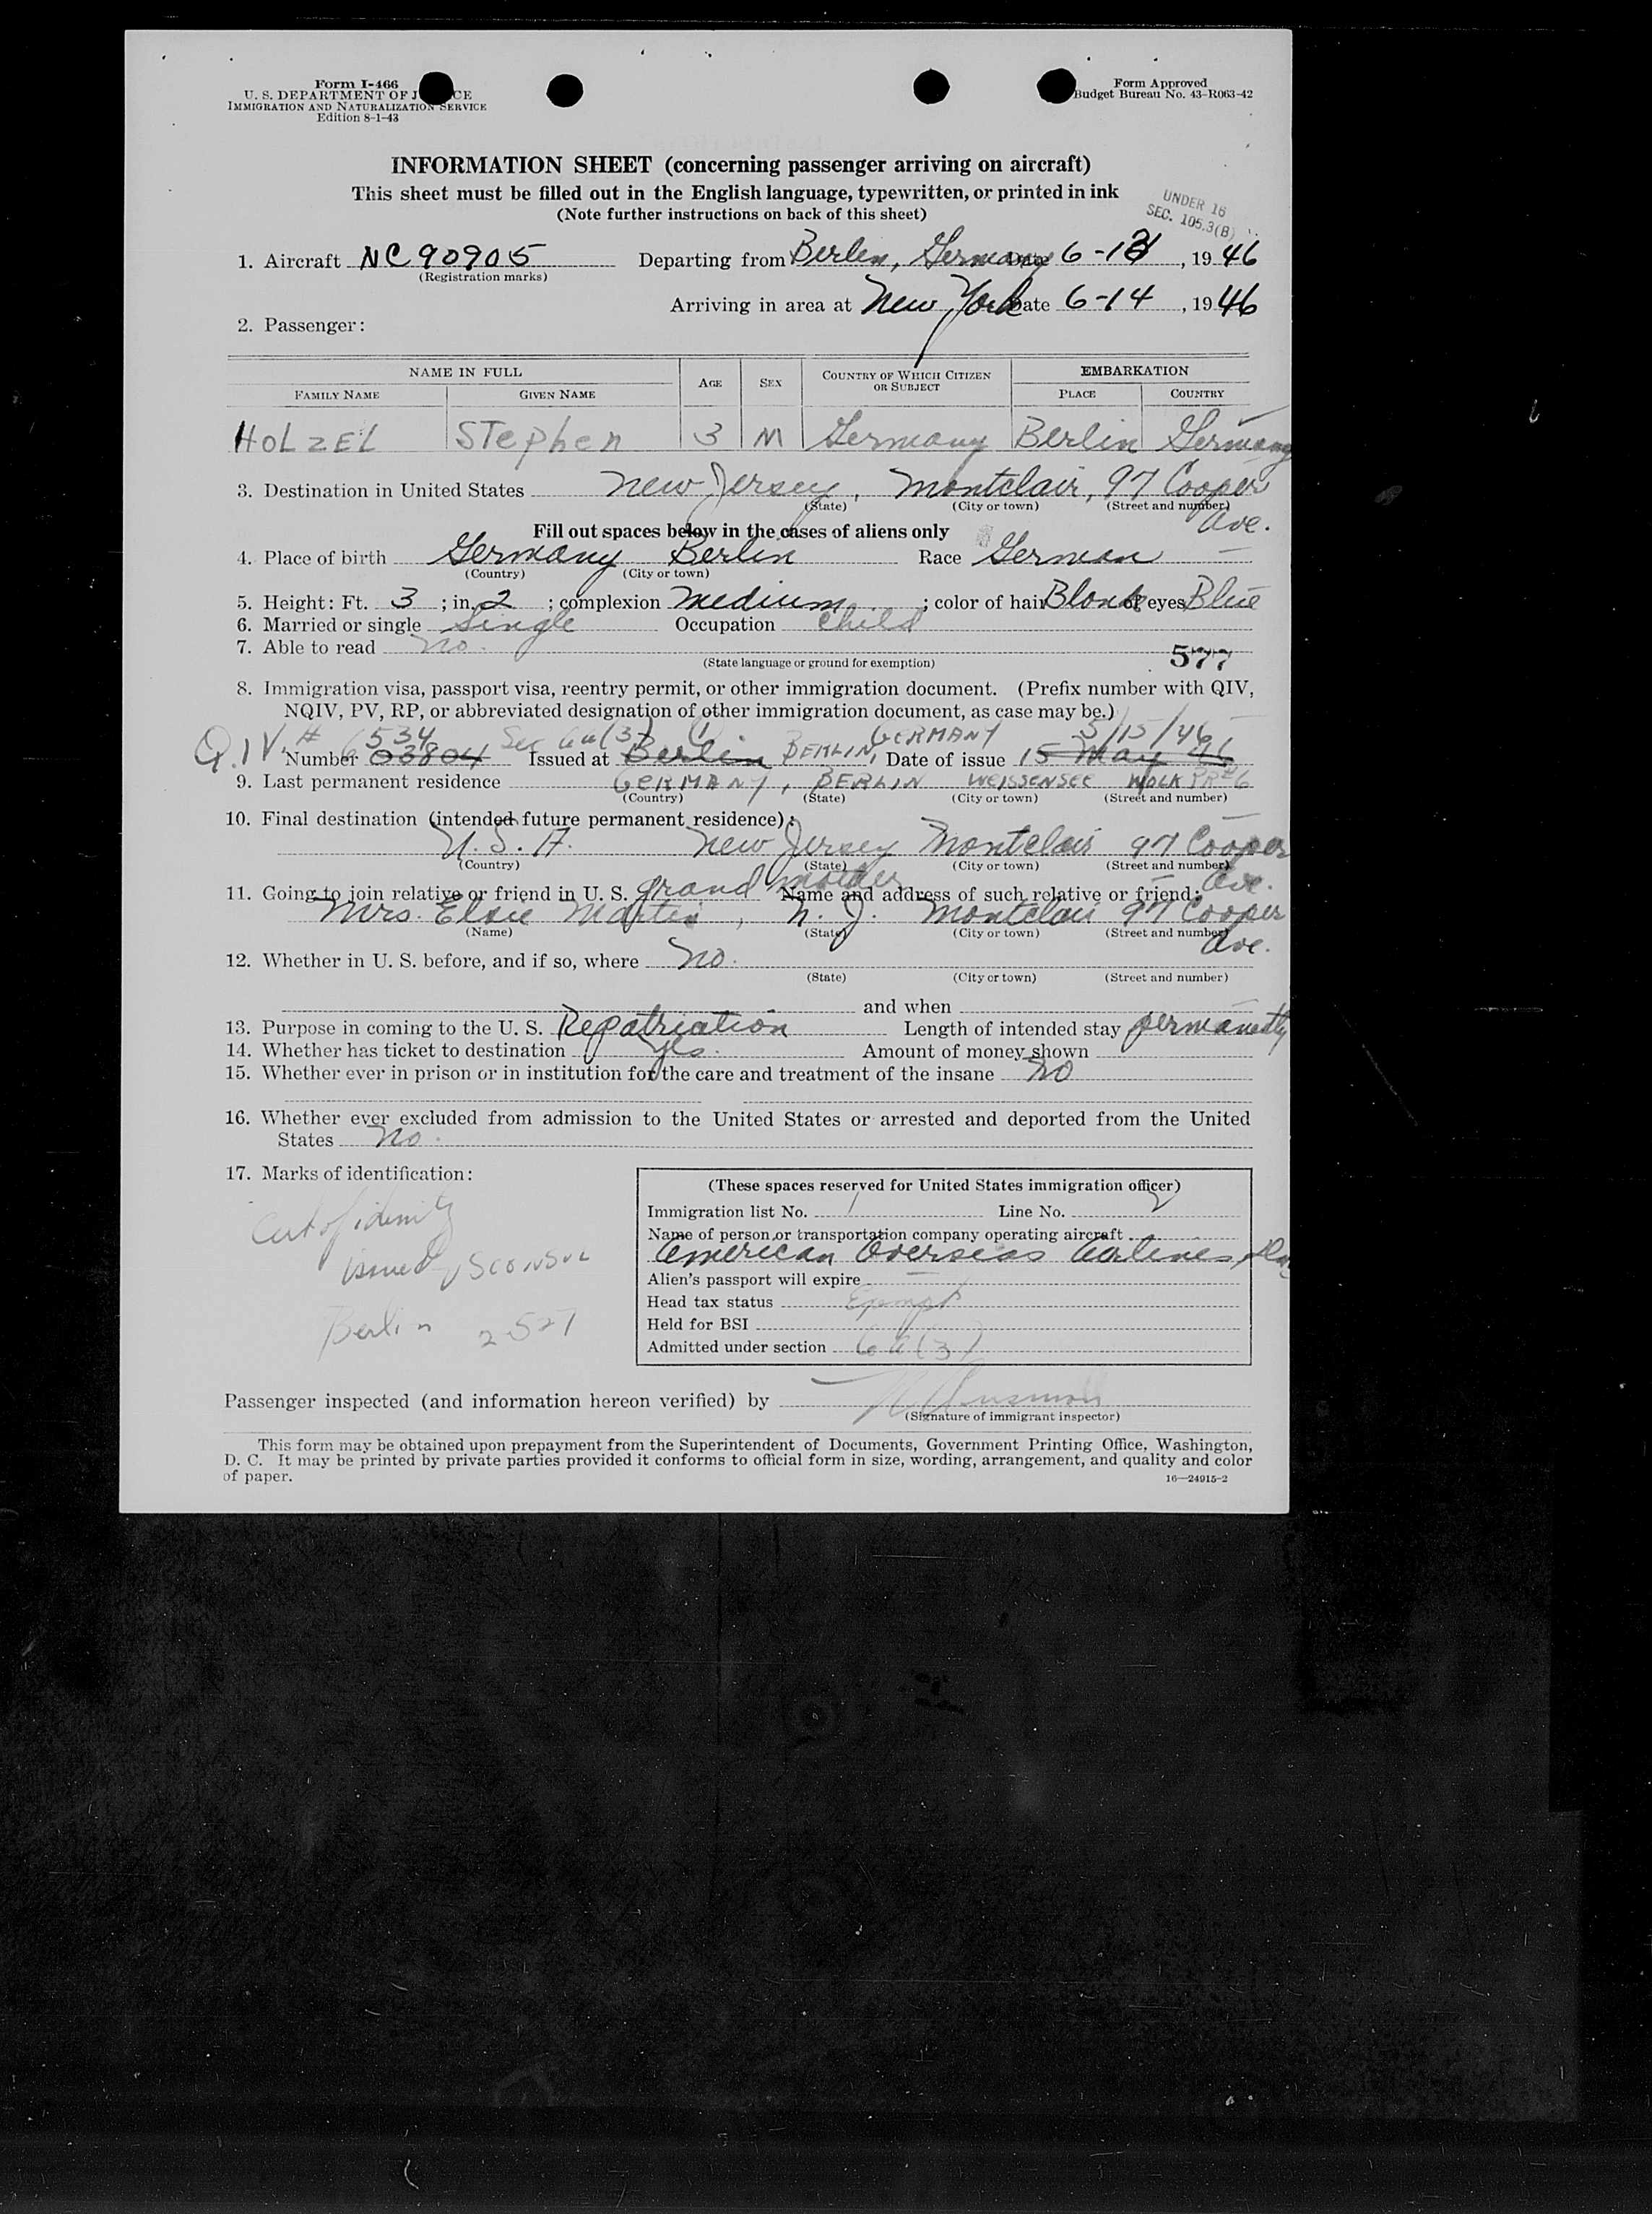 Form I-466
U. S. DEPARTMENT OF J CE
IMMIGRATION AND NATURALIZATION SERVICE
Edition 8-1-43
Form Approved
Budget Bureau No. 43-R063-42
INFORMATION SHEET (concerning passenger arriving on aircraft)
This sheet must be filled out in the English language, typewritten, or printed in ink
(Note further instructions on back of this sheet)
UNDER 16
SEC. 105.3(B)
1. Aircraft NC90905 Departing from Berlin, Germany Date 6-13, 1946
(Registration marks)
Arriving in area at New York Date 6-14, 1946
2. Passenger:
NAME IN FULL AGE SEX COUNTRY OF WHICH CITIZEN OR SUBJECT EMBARKATION
FAMILY NAME GIVEN NAME PLACE COUNTRY
HOLZEL Stephen 3 M Germany Berlin Germany
3. Destination in United States New Jersey, Montclair, 97 Cooper Ave.
(State) (City or town) (Street and number)
Fill out spaces below in the cases of aliens only
4. Place of birth Germany Berlin Race German
(Country) (City or town)
5. Height: Ft. 3; in. 2; complexion Medium; color of hair Blond of eyes Blue
6. Married or single Single Occupation Child
7. Able to read no.
(State language or ground for exemption)
577
8. Immigration visa, passport visa, reentry permit, or other immigration document. (Prefix number with QIV,
NQIV, PV, RP, or abbreviated designation of other immigration document, as case may be.)
Q.IV. # 6534 Sec 6a(3) GERMANY 5/15/46
Number 03804 Issued at Berlin BERLIN, Date of issue 15 May 46
9. Last permanent residence GERMANY, BERLIN WEISSENSEE
(Country) (State) (City or town) (Street and number)
10. Final destination (intended future permanent residence):
U.S.A. New Jersey Montclair 97 Cooper Ave.
(Country) (State) (City or town) (Street and number)
11. Going to join relative or friend in U. S. grand mother Name and address of such relative or friend:
Mrs. Elsie Martin, N. J. Montclair 97 Cooper Ave.
(Name) (State) (City or town) (Street and number)
12. Whether in U. S. before, and if so, where No.
(State) (City or town) (Street and number)
and when
13. Purpose in coming to the U. S. Repatriation Length of intended stay permanently
14. Whether has ticket to destination yes. Amount of money shown
15. Whether ever in prison or in institution for the care and treatment of the insane No
16. Whether ever excluded from admission to the United States or arrested and deported from the United
States No.
17. Marks of identification:
Cert of identity
issued USCONSUL
Berlin 2527
(These spaces reserved for United States immigration officer)
Immigration list No. 1 Line No. 2
Name of person or transportation company operating aircraft
American Overseas Airlines,
Alien's passport will expire
Head tax status Exempt
Held for BSI
Admitted under section 6a(3)
Passenger inspected (and information hereon verified) by
(Signature of immigrant inspector)
This form may be obtained upon prepayment from the Superintendent of Documents, Government Printing Office, Washington,
D. C. It may be printed by private parties provided it conforms to official form in size, wording, arrangement, and quality and color
of paper.
16—24915-2